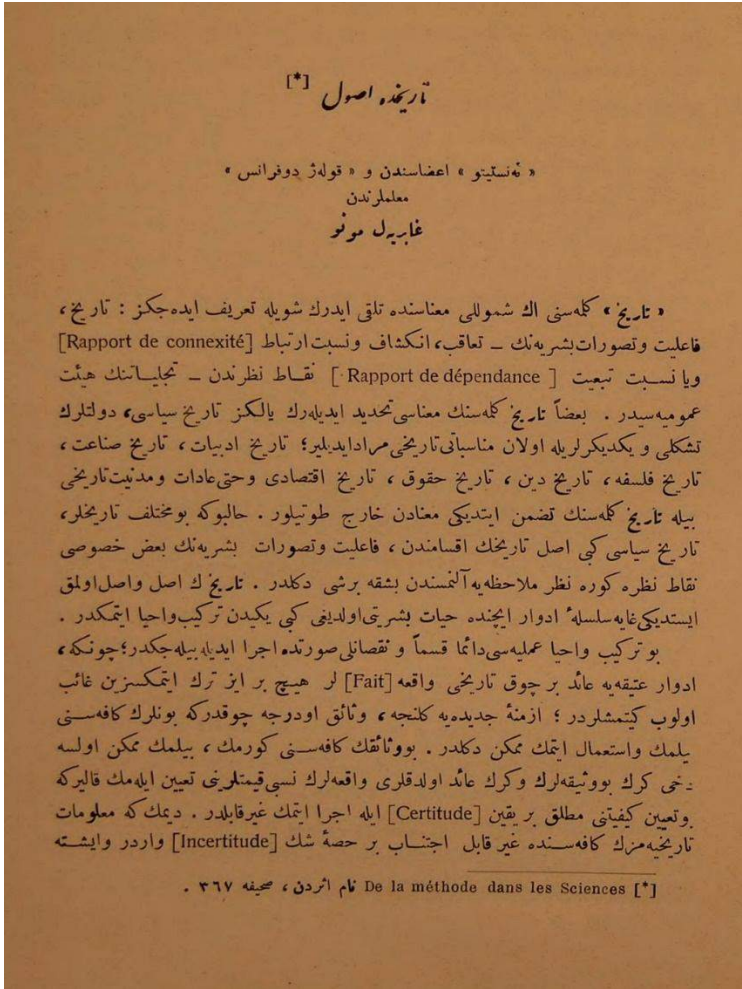 تاریخده اصول [*]
« ئه‌نستیتو » اعضاسندن و « قوله‌ژ دوفرانس »
معلملرندن
غابریه‌ل مونو
« تاریخ » کله‌سنی اك شموللی معناسنده تلقی ایدرك شویله تعریف ایده‌جکز : تاریخ ،
فاعلیت وتصورات بشریه‌نك ــ تعاقب، انکشاف ونسبت ارتباط [Rapport de connexité]
ویا نسبت تبعیت [ Rapport de dépendance ] نقاط نظرندن ــ تجلیاتنك هیئت
عمومیه‌سیدر . بعضاً تاریخ کله‌سنك معناسی تحدید ایدیله‌رك یالکز تاریخ سیاسی، دولتلرك
تشکلی و یکدیکرلریله اولان مناسباتی تاریخی مراد ایدیلیر؛ تاریخ ادبیات ، تاریخ صناعت ،
تاریخ فلسفه ، تاریخ دین ، تاریخ حقوق ، تاریخ اقتصادی وحتی عادات ومدنیت تاریخی
بیله تاریخ کله‌سنك تضمن ایتدیکی معنادن خارج طوتیلور . حالبوکه بو مختلف تاریخلر،
تاریخ سیاسی کبی اصل تاریخك اقسامندن ، فاعلیت وتصورات بشریه‌نك بعض خصوصی
نقاط نظره کوره نظر ملاحظه‌یه آلنمسندن بشقه برشی دکلدر . تاریخ ك اصل واصل اولمق
ایستدیکی غایه سلسلهٔ ادوار ایچنده حیات بشریتی اولدیغی کبی یکیدن ترکیب واحیا ایتمکدر .
بو ترکیب واحیا عملیه‌سی دائما قسماً و نقصانلی صورتده اجرا ایدیله بیله‌جکدر؛ چونکه ،
ادوار عتیقه‌یه عائد بر چوق تاریخی واقعه [Fait] لر هیچ بر ایز ترك ایتمکسزین غائب
اولوب کیتمشلردر ؛ ازمنهٔ جدیده‌یه کلنجه ، وثائق اودرجه چوقدرکه بونلرك کافه‌سنی
بیلمك واستعمال ایتمك ممکن دکلدر . بووثائقك کافه‌سنی کورمك ، بیلمك ممکن اولسه
دخی کرك بووثیقه‌لرك وکرك عائد اولدقلری واقعه‌لرك نسبی قیمتلرینی تعیین ایله‌مك قالیرکه
بوتعیین کیفیتنی مطلق بر یقین [Certitude] ایله اجرا ایتمك غیرقابلدر . دیمك که معلومات
تاریخیه‌مزك کافه‌سنده غیر قابل اجتناب بر حصهٔ شك [Incertitude] واردر وایشته
[*] De la méthode dans les Sciences نام اثردن ، صحیفه ٣٦٧ .